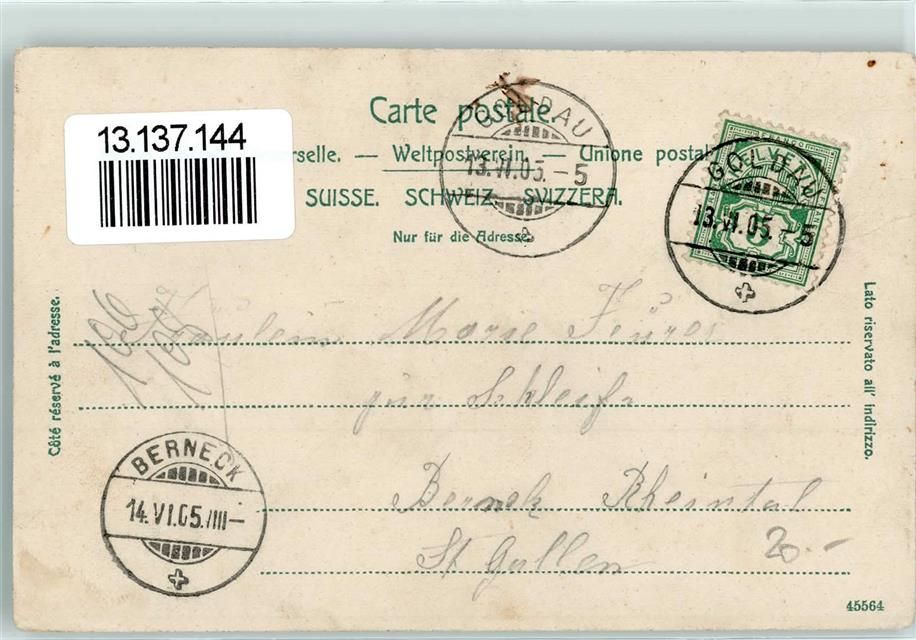 13.137.144
Carte postale.
erselle. — Weltpostverein. — Unione postal
SUISSE. SCHWEIZ. SVIZZERA.
Nur für die Adresse.
GOLDAU
13.VI.05.-5
GOLDAU
13.VI.05.-5
FRANCO
HELVETIA
5
Côté réservé à l'adresse.
Lato riservato all' indirizzo.
Fräulein Marie
zur Schleife
Bernek Rheintal
St Gallen
20.-
BERNECK
14.VI.05./III-
45564